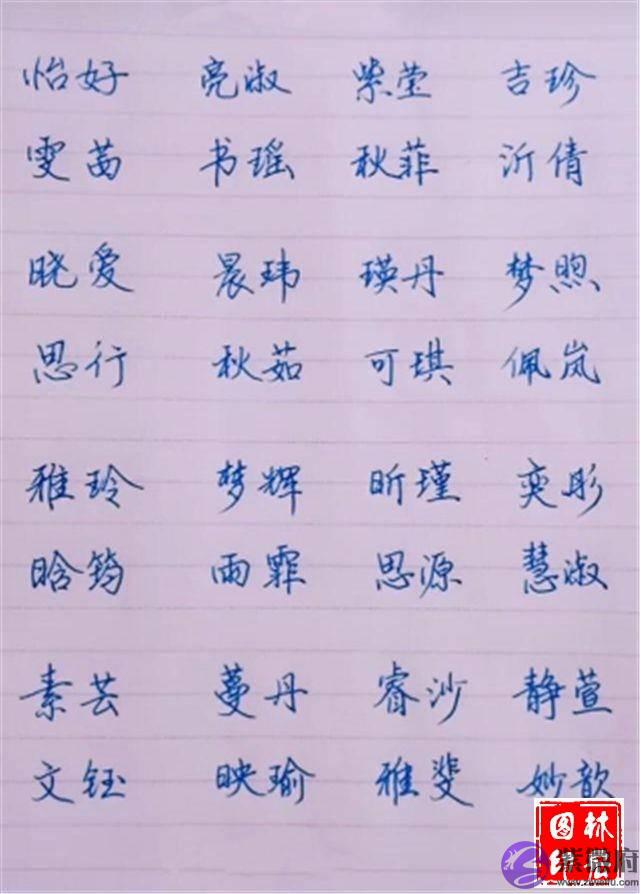 怡好 亮淑 紫莹 吉珍
雯茵 书瑶 秋菲 沂倩
晓爱 晨玮 瑛丹 梦煦
思行 秋茹 可琪 佩岚
雅玲 梦辉 昕瑾 奕彤
晗筠 雨霏 思源 慧淑
素芸 蔓丹 睿沙 静萱
文钰 映瑜 雅斐 妙歆
紫微府